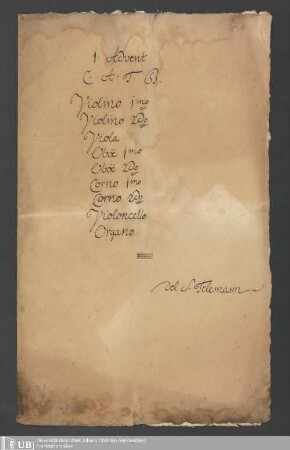 1 Advent
C. A. T. B.
Violino 1mo
Violino 2do
Viola
Oboe 1mo
Oboe 2do
Corno 1mo
Corno 2do
Violoncello
Organo.
del S. Telemann
UB
Universitätsbibliothek Johann Christian Senckenberg
Frankfurt am Main